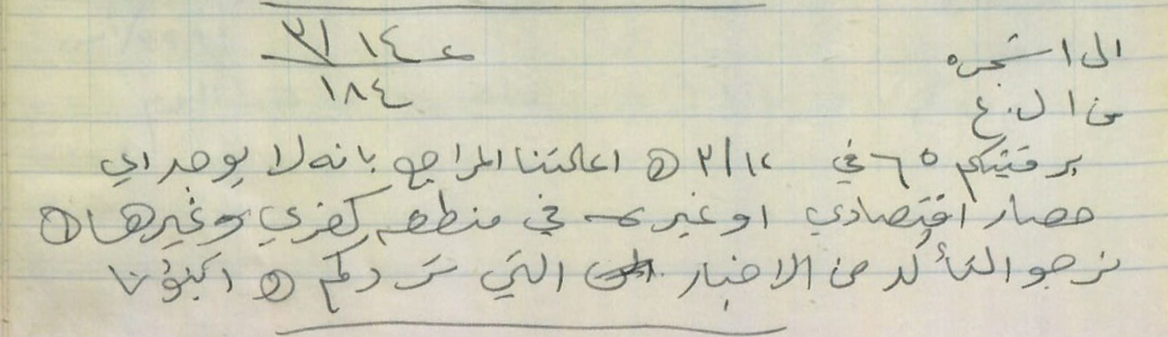 ٣/١٤
١٨٤
الى / شجره
من / ل. ع
برقيتكم ٦٥ في ٣/١٤ (١) اعلمتنا المراجع بانه لا يوجد اي
حصار اقتصادي او غيره في منطقه كفري وغيرها (١)
نرجو التأكد من الاخبار التي تردكم (١) انبؤنا